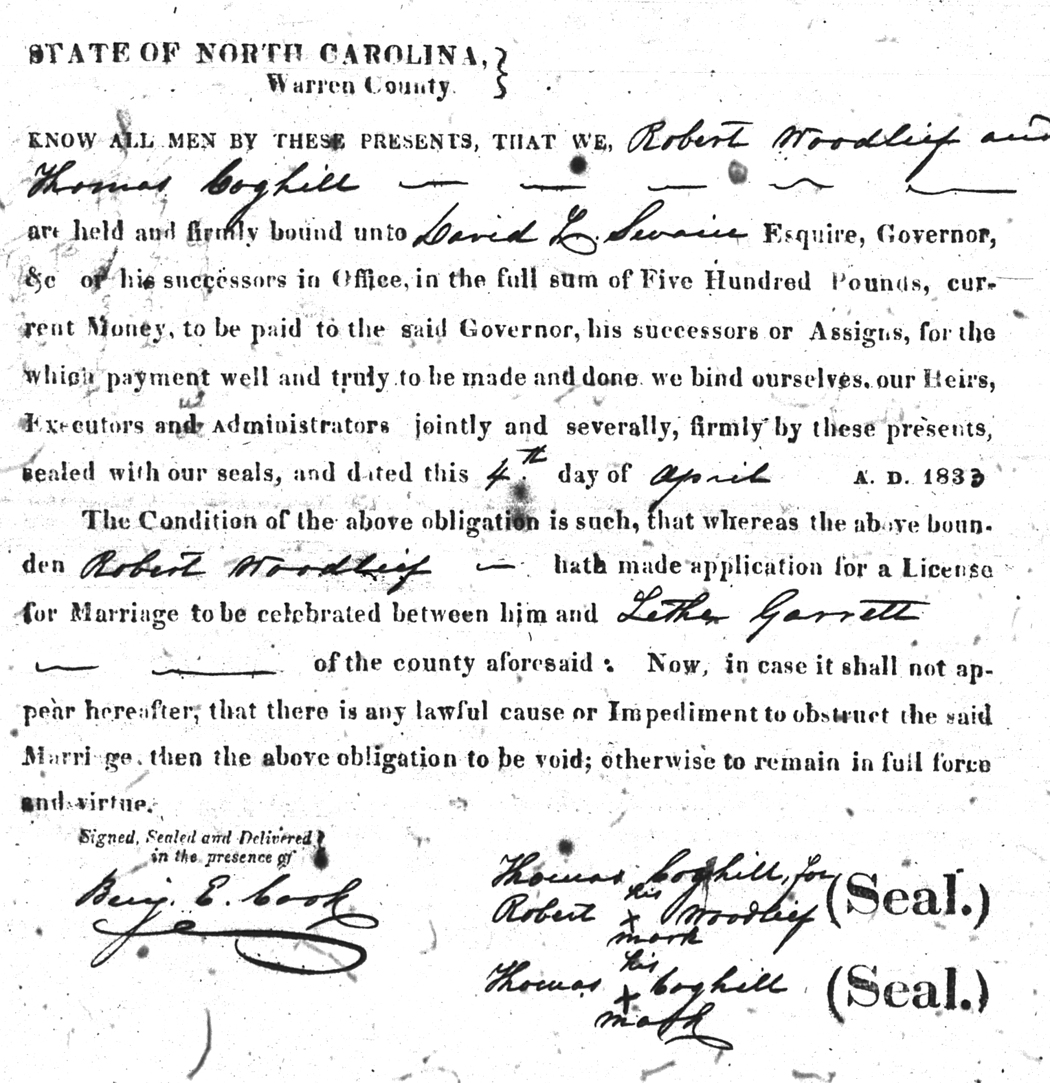 STATE OF NORTH CAROLINA,
Warren County.
KNOW ALL MEN BY THESE PRESENTS, THAT WE, Robert Woodlief and
Thomas Coghill
are held and firmly bound unto David L. Swain Esquire, Governor,
&c or his successors in Office, in the full sum of Five Hundred Pounds, cur-
rent Money, to be paid to the said Governor, his successors or Assigns, for the
which payment well and truly to be made and done we bind ourselves, our Heirs,
Executors and Administrators jointly and severally, firmly by these presents,
sealed with our seals, and dated this 4th. day of April A. D. 1833
The Condition of the above obligation is such, that whereas the above boun-
den Robert Woodlief hath made application for a License
for Marriage to be celebrated between him and Lether Garrett
of the county aforesaid: Now, in case it shall not ap-
pear hereafter, that there is any lawful cause or Impediment to obstruct the said
Marriage, then the above obligation to be void; otherwise to remain in full force
and virtue.
Signed, Sealed and Delivered
in the presence of
Benj. E. Cook
Thomas Coghill, for
his
Robert x Woodlief (Seal.)
mark
his
Thomas x Coghill (Seal.)
mark